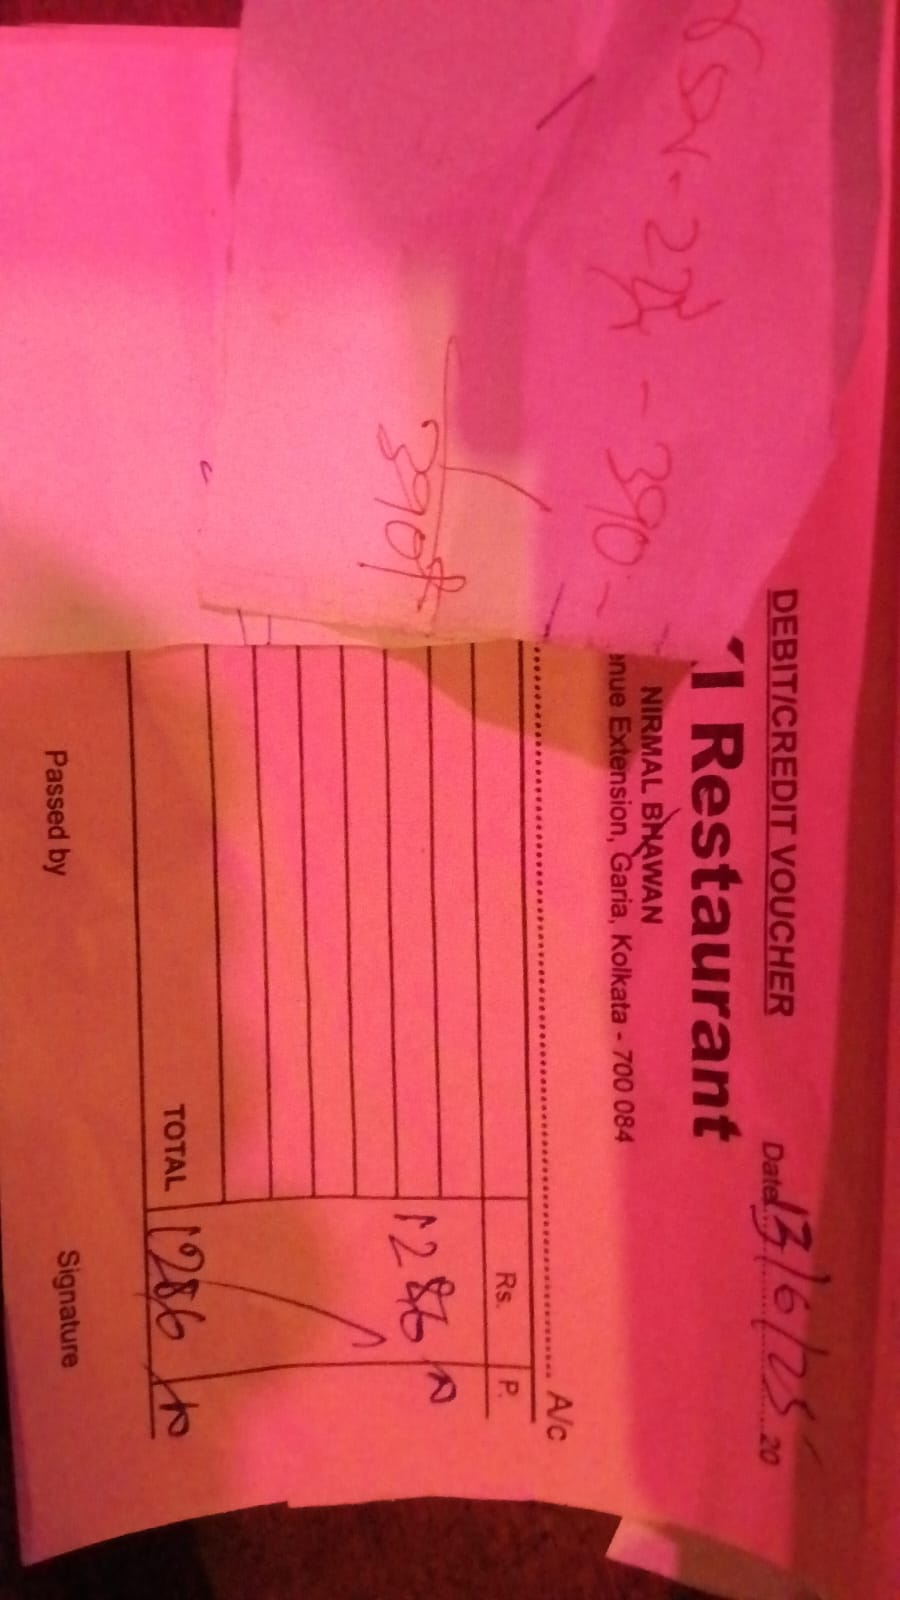 DEBIT/CREDIT VOUCHER
Date 13/6/25 20
1 Restaurant
NIRMAL BHAWAN
enue Extension, Garia, Kolkata - 700 084
A/c
Rs. P.
1286
TOTAL 1286
Passed by Signature
- 390 -
390